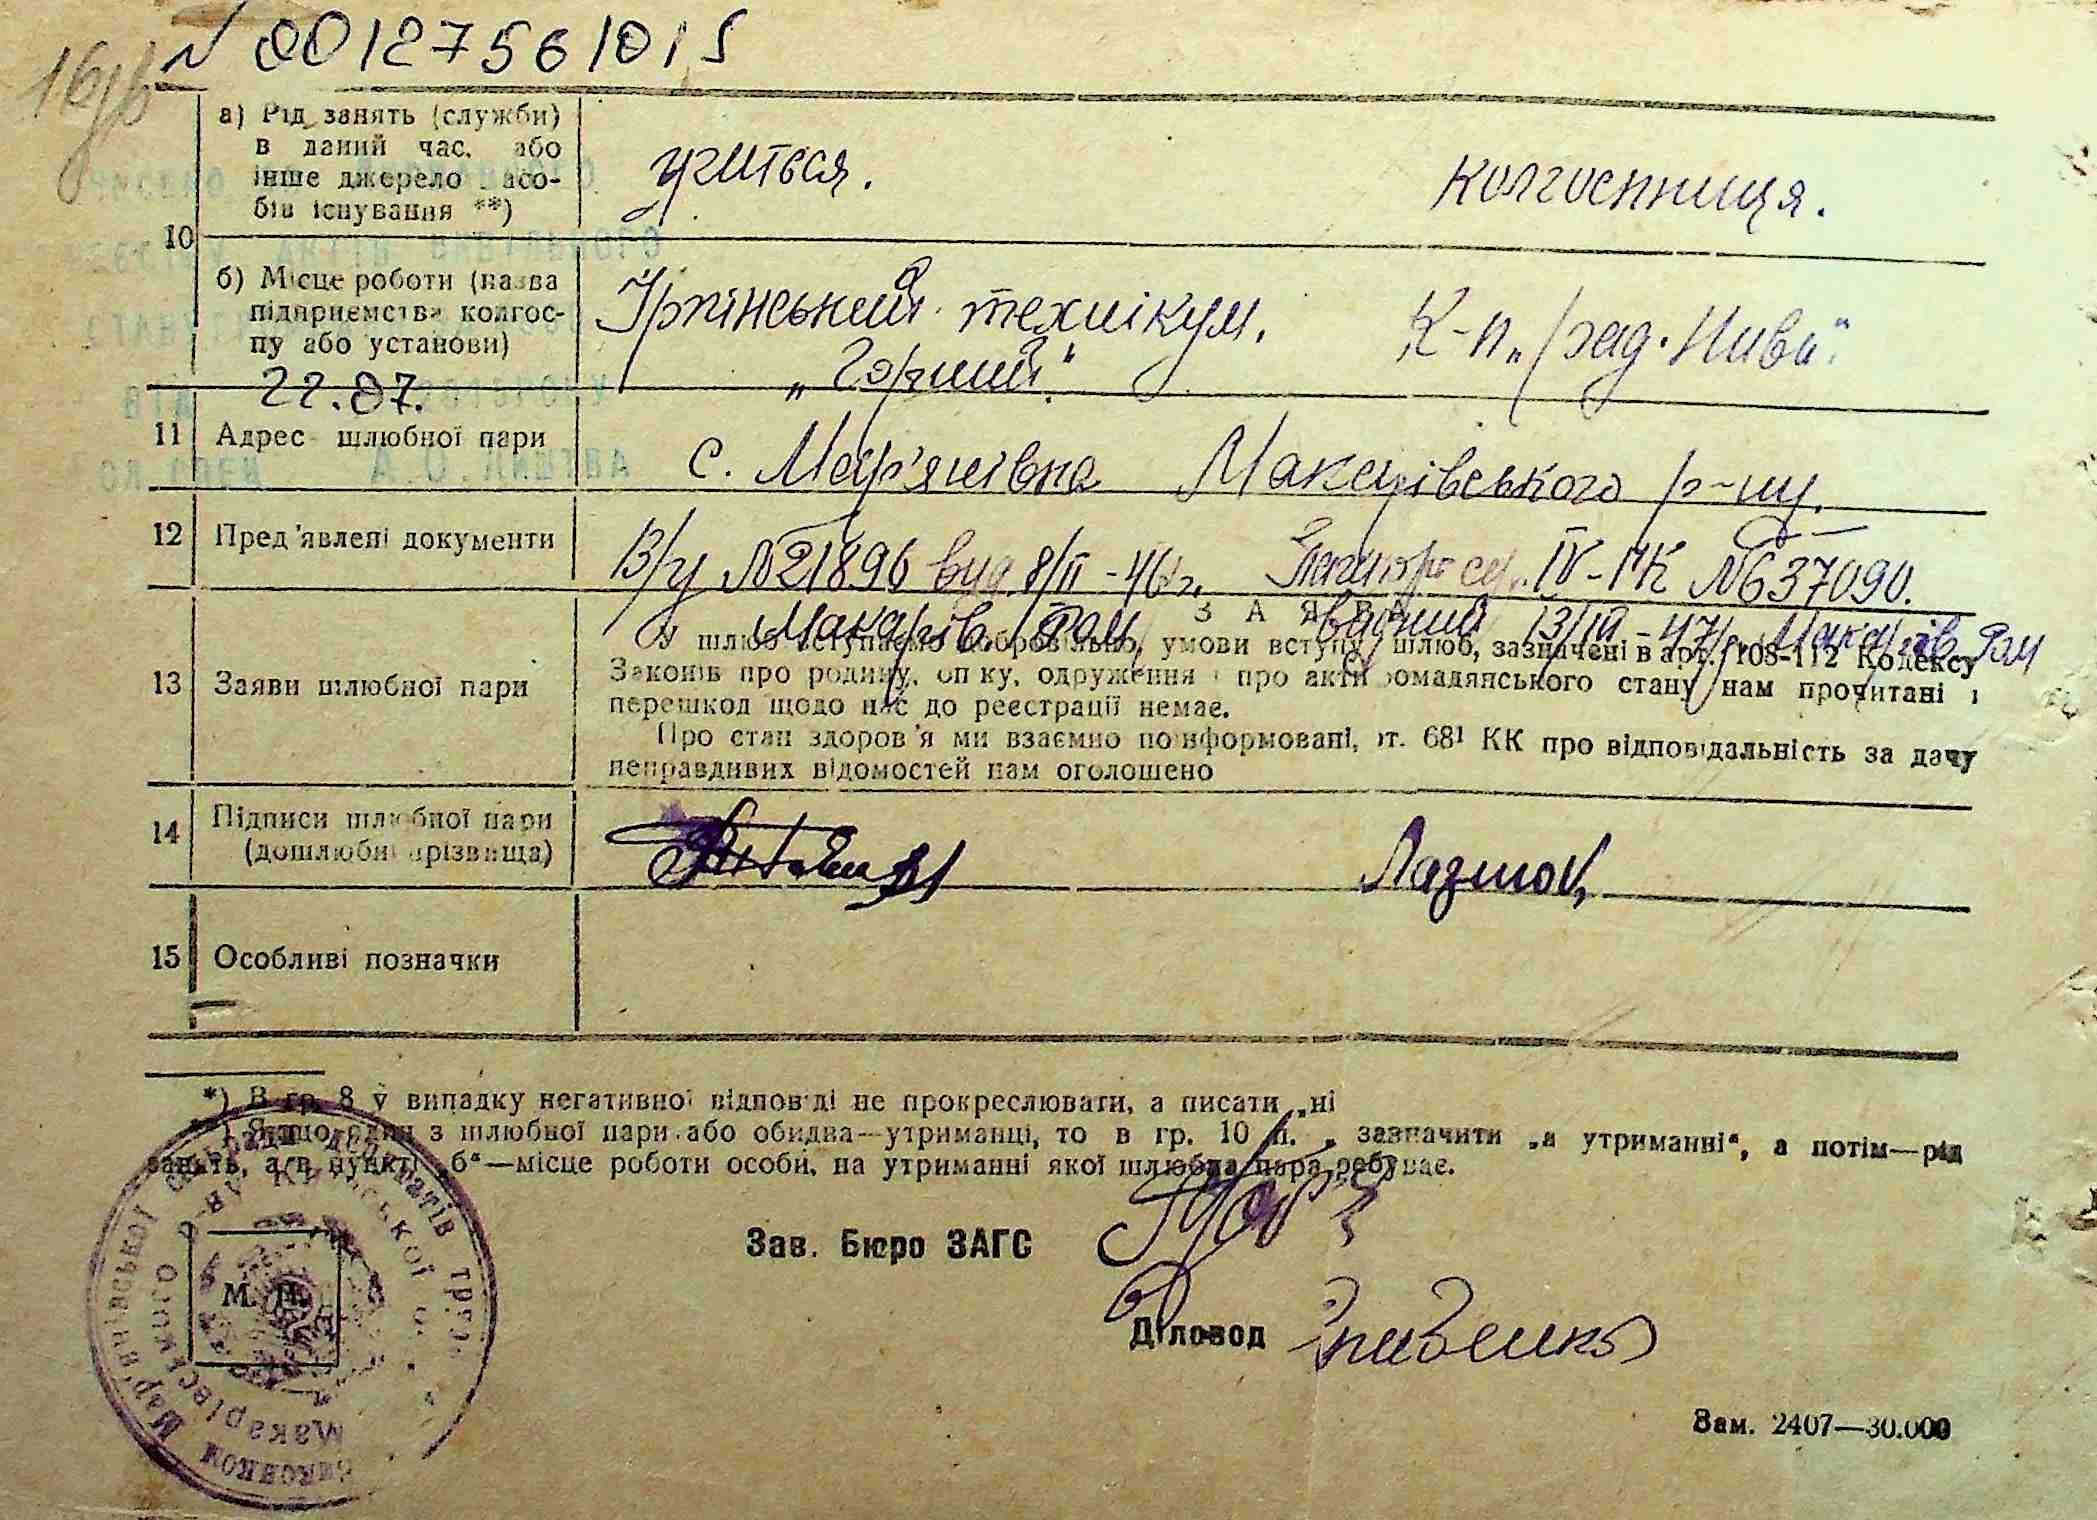 N 00127561015
16
10
а) Рід занять (служби)
в даний час, або
інше джерело засо-
бів існування **)
учиться.
колгоспниця.
б) Місце роботи (назва
підприємства колгос-
пу або установи)
Ірпінський технікум,
„Горний".
К-п „рад. Нива".
22.07.
11 Адрес шлюбної пари
с. Мар'янівка Макарівського р-ну.
12 Пред'явлені документи
В/у №21896 вид. 8/ІІ-46 г. Паспорт IV-ПК №637090.
Макарів. виданий 13/ІІІ-47 р. Макарів
З А Я В А
13 Заяви шлюбної пари
У шлюб вступаємо добровільно, умови вступу шлюб, зазначені в арт. 108-112 Кодексу
Законів про родину, опіку, одруження і про акти громадянського стану нам прочитані і
перешкод щодо нас до реєстрації немає.
Про стан здоров'я ми взаємно поінформовані, ст. 68¹ КК про відповідальність за дачу
неправдивих відомостей нам оголошено
14 Підписи шлюбної пари
(дошлюбні прізвища)
15 Особливі позначки
*) В гр. 8 у випадку негативної відповіді не прокреслювати, а писати „ні
**) Якщо один з шлюбної пари або обидва—утриманці, то в гр. 10 п. „ зазначити „а утриманні", а потім—рід
занять, а в пункті „б"—місце роботи особи, на утриманні якої шлюбна пара перебуває.
Зав. Бюро ЗАГС
М. П.
Діловод
Зам. 2407—30.000